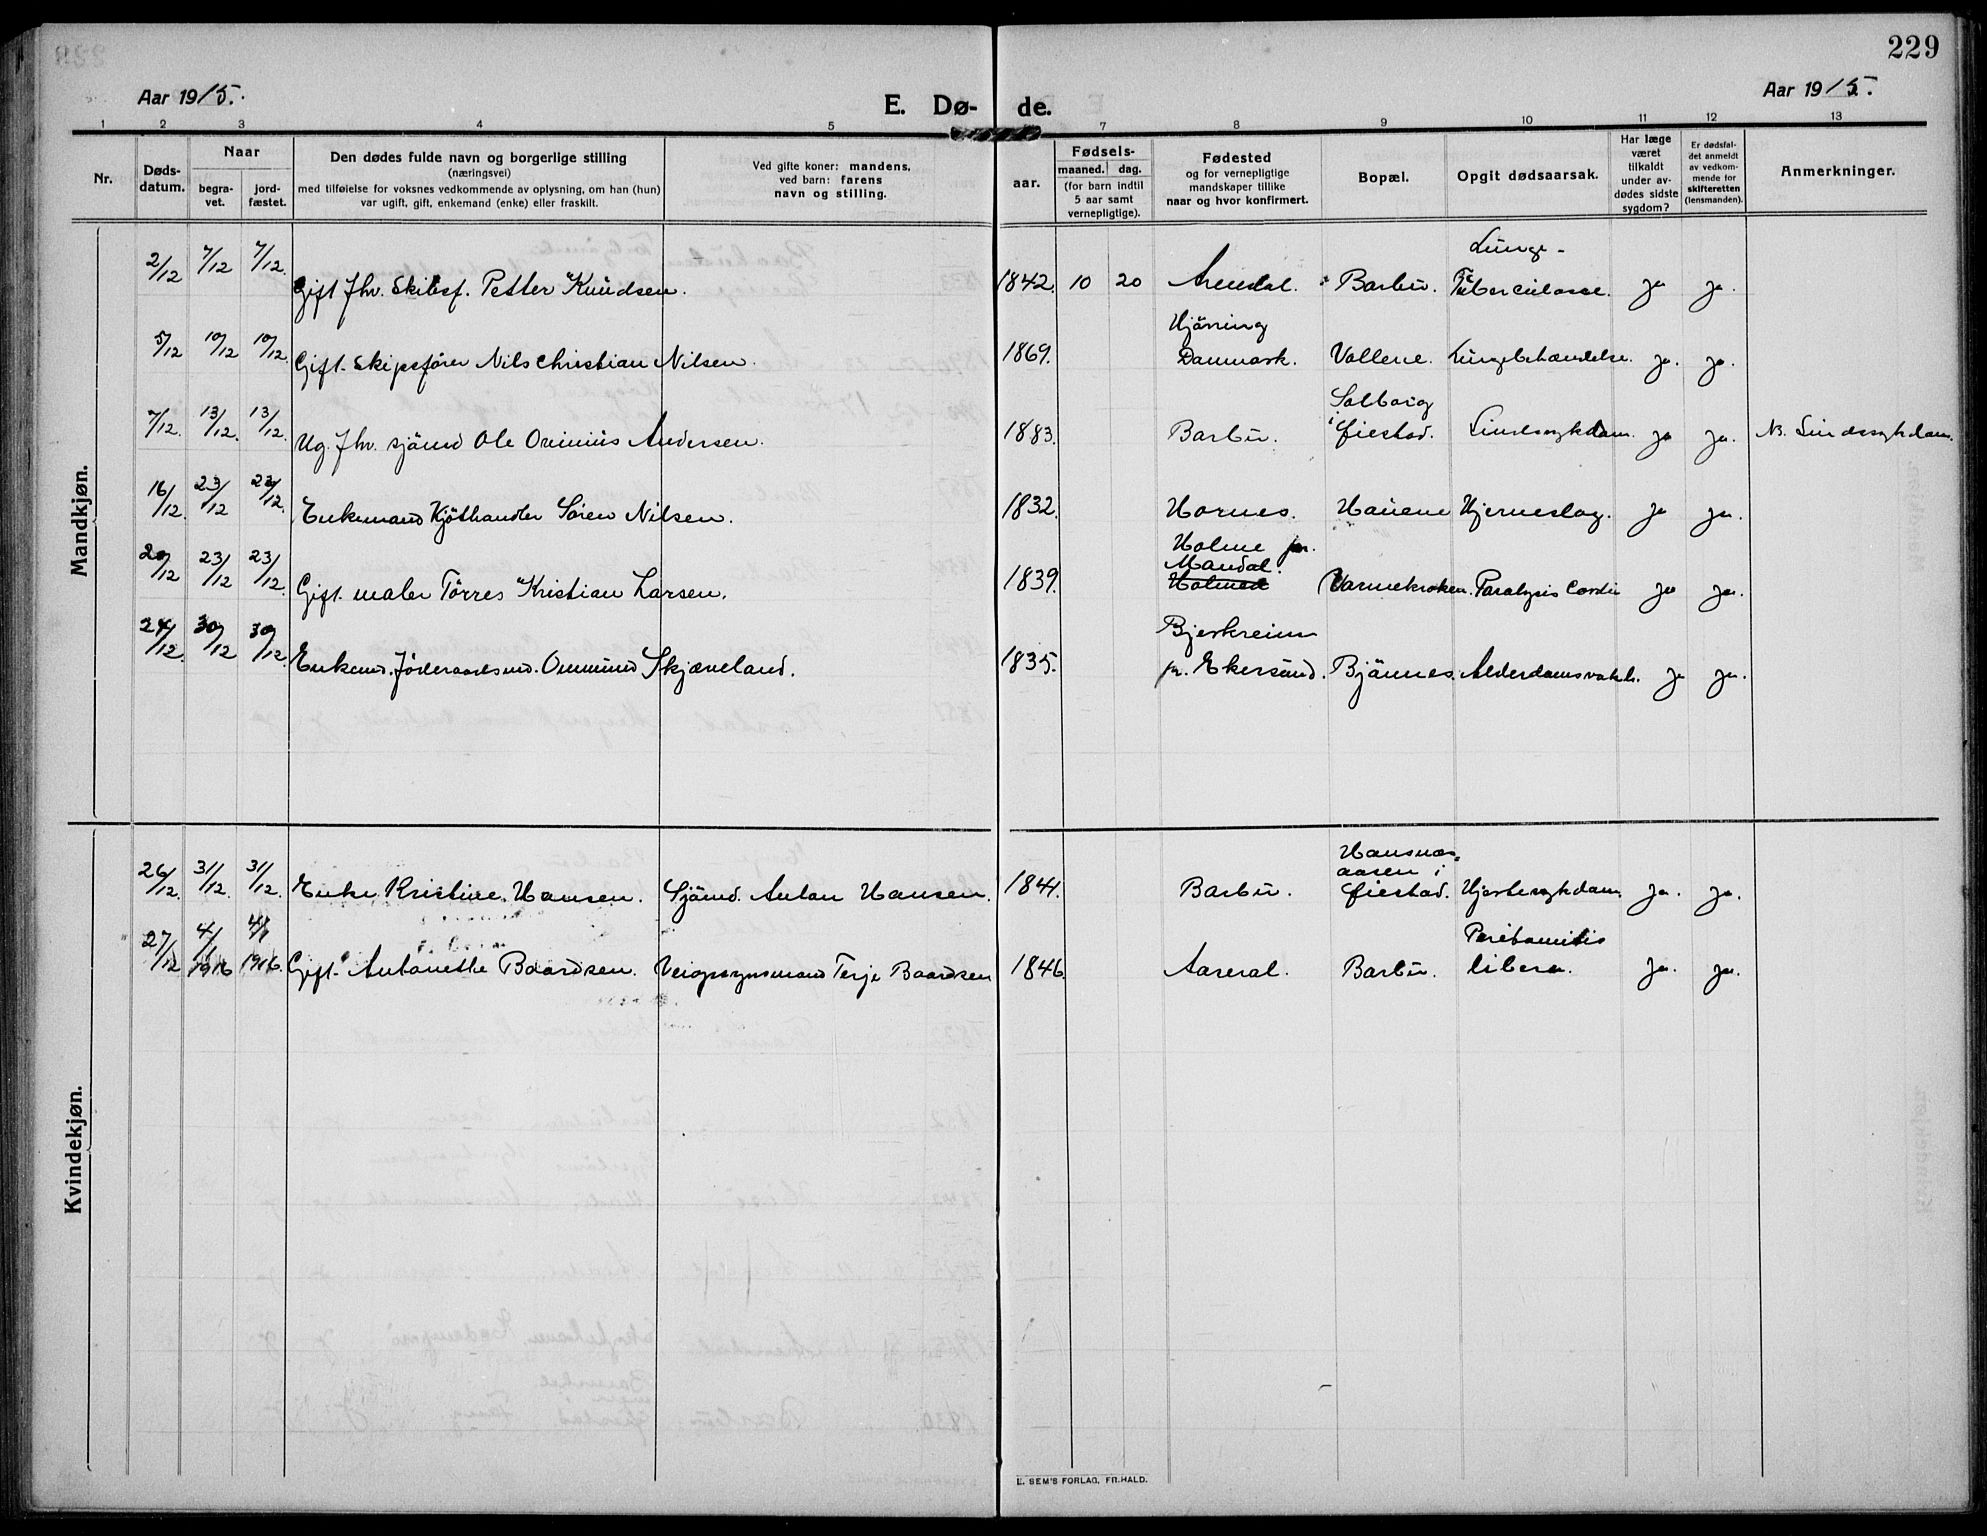 229
Aar 1915.
E. Dø- de.
Aar 1915.
1 2 3 4 5 7 8 9 10 11 12 13
Nr.
Døds-
datum.
Naar
begra-
vet.
jord-
fæstet.
Den dødes fulde navn og borgerlige stilling
(næringsvei)
med tilføielse for voksnes vedkommende av oplysning, om han (hun)
var ugift, gift, enkemand (enke) eller fraskilt.
Ved gifte koner: mandens,
ved barn: farens
navn og stilling.
aar.
Fødsels-
maaned. dag.
(for barn indtil
5 aar samt
vernepligtige).
Fødested
og for vernepligtige
mandskaper tillike
naar og hvor konfirmert.
Bopæl.
Opgit dødsaarsak.
Har læge
været
tilkaldt
under av-
dødes sidste
sygdom?
Er dødsfal-
det anmeldt
av vedkom-
mende for
skifteretten
(lensmanden).
Anmerkninger.
Mandkjøn.
Lunge-
2/12 7/12 7/12. Gift fhv. Skibsf. Petter Knudsen. 1842. 10 20 Arendal. Barbu. Tuberculose. ja ja.
Hjörring
5/12 10/12 10/12. Gift. Skipsfører Nils Christian Nilsen. 1869. Danmark. Vollene. Lungebetændelse. ja. ja.
Solborg
7/12. 13/12. 13/12. Ug. fhv. sjømd Ole Ommius Andersen. 1883. Barbu. i Øiestad. Sindssykdom. ja ja. N. Sindssykdom.
16/12. 23/12 23/12. Enkemand Kjøthandler Søren Nilsen. 1832. Hornes. Hauene Hjerneslag. ja ja.
Holme pr.
Mandal.
20/12 23/12 23/12. Gift. maler Tørres Kristian Larsen. 1839. Holmed Varmekroken. Paralysis Cordis ja ja.
Bjerkreim
24/12. 30/12 30/12. Enkemd. Föderaadsmd. Ommund Skjæveland. 1835. pr. Ekersund. Bjønnes. Alderdomsvakh. ja ja.
Kvindekjøn.
Hansnes-
aasen i
26/12. 31/12. 31/12. Enke Kristine Hansen. Sjømd. Anton Hansen. 1841. Barbu. Øiestad. Hjertesykdom. ja. ja.
Peritonitis
27/12 4/1 1916 4/1 1916. Gift. Antonette Baardsen. Veiopsynsmand Terje Baardsen 1846. Aaseral. Barbu. libera. ja. ja.
E. SEM'S FORLAG, FR.HALD.